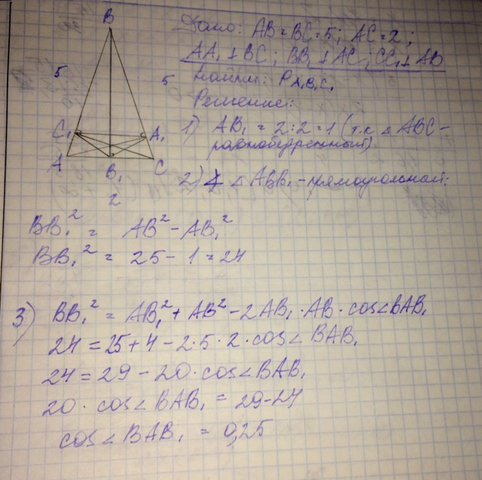 B
5
5
C₁
A₁
A
B₁
C
2
Дано: AB = BC = 5; AC = 2;
AA₁ ⊥ BC; BB₁ ⊥ AC; CC₁ ⊥ AB
Найти: P A₁B₁C₁
Решение:
1) AB₁ = 2:2 = 1 (т.к △ ABC -
равнобедренный)
2) △ ABB₁ - прямоугольный:
BB₁² = AB² - AB₁²
BB₁² = 25 - 1 = 24
3) BB₁² = AB₁² + AB² - 2AB₁ · AB · cos∠BAB₁
24 = 25 + 4 - 2 · 5 · 2 · cos∠BAB₁
24 = 29 - 20 · cos∠BAB₁
20 · cos∠BAB₁ = 29-24
cos∠BAB₁ = 0,25